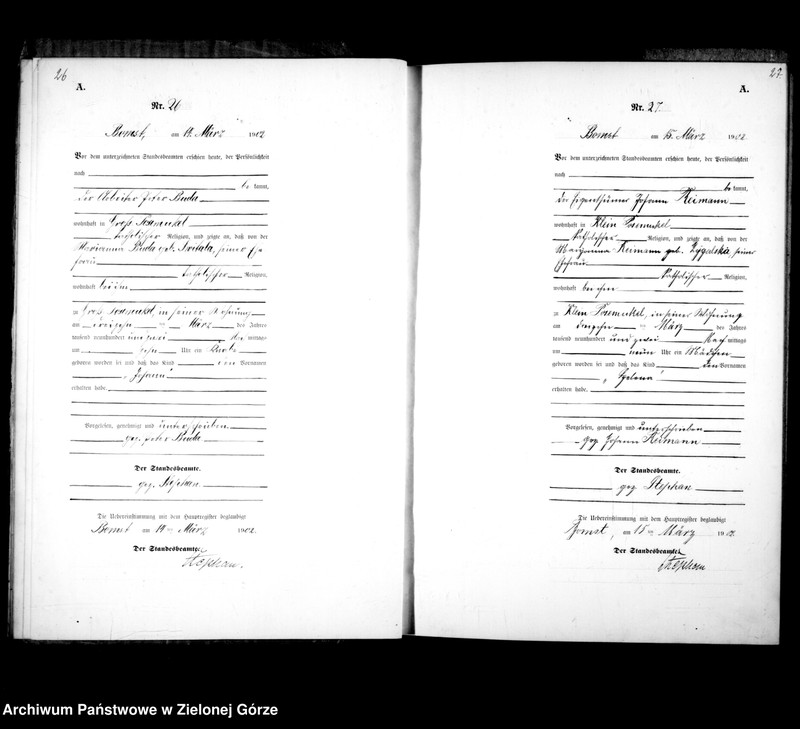 26
A.
Nr. 26
Bomst, am 14. März 1902
Vor dem unterzeichneten Standesbeamten erschien heute, der Persönlichkeit
nach
be kannt,
der Arbeiter Peter Buda
wohnhaft in Groß Posemukel
katholischer Religion, und zeigte an, daß von der
Marianna Buda geb. seiner Ehe
frau
katholischer Religion,
wohnhaft bei ihm
zu Groß Posemukel in seiner Wohnung
am dreizehn ten März des Jahres
tausend neunhundert und zwei mittags
um zehn Uhr ein Knabe
geboren worden sei und daß das Kind den Vornamen
„Johann“
erhalten habe.
Vorgelesen, genehmigt und unterschrieben.
gez. Peter Buda
Der Standesbeamte.
gez. Stephan
Die Uebereinstimmung mit dem Hauptregister beglaubigt
Bomst am 14ten März 1902.
Der Standesbeamte.
Stephan.
27.
A.
Nr. 27.
Bomst am 15. März 1902.
Vor dem unterzeichneten Standesbeamten erschien heute, der Persönlichkeit
nach
be kannt,
der Eigenthümer Johann Reimann
wohnhaft in Klein Posemukel
katholischer Religion, und zeigte an, daß von der
Reimann geb. seiner
Ehefrau
katholischer Religion,
wohnhaft bei ihm
zu Klein Posemukel, in seiner Wohnung
am März des Jahres
tausend neunhundert und zwei Nach mittags
um neun Uhr ein Mädchen
geboren worden sei und daß das Kind den Vornamen
„Helena“
erhalten habe.
Vorgelesen, genehmigt und unterschrieben
gez Johann Reimann
Der Standesbeamte.
gez Stephan
Die Uebereinstimmung mit dem Hauptregister beglaubigt
Bomst, am 15ten März 1902.
Der Standesbeamte.
Stephan
Archiwum Państwowe w Zielonej Górze